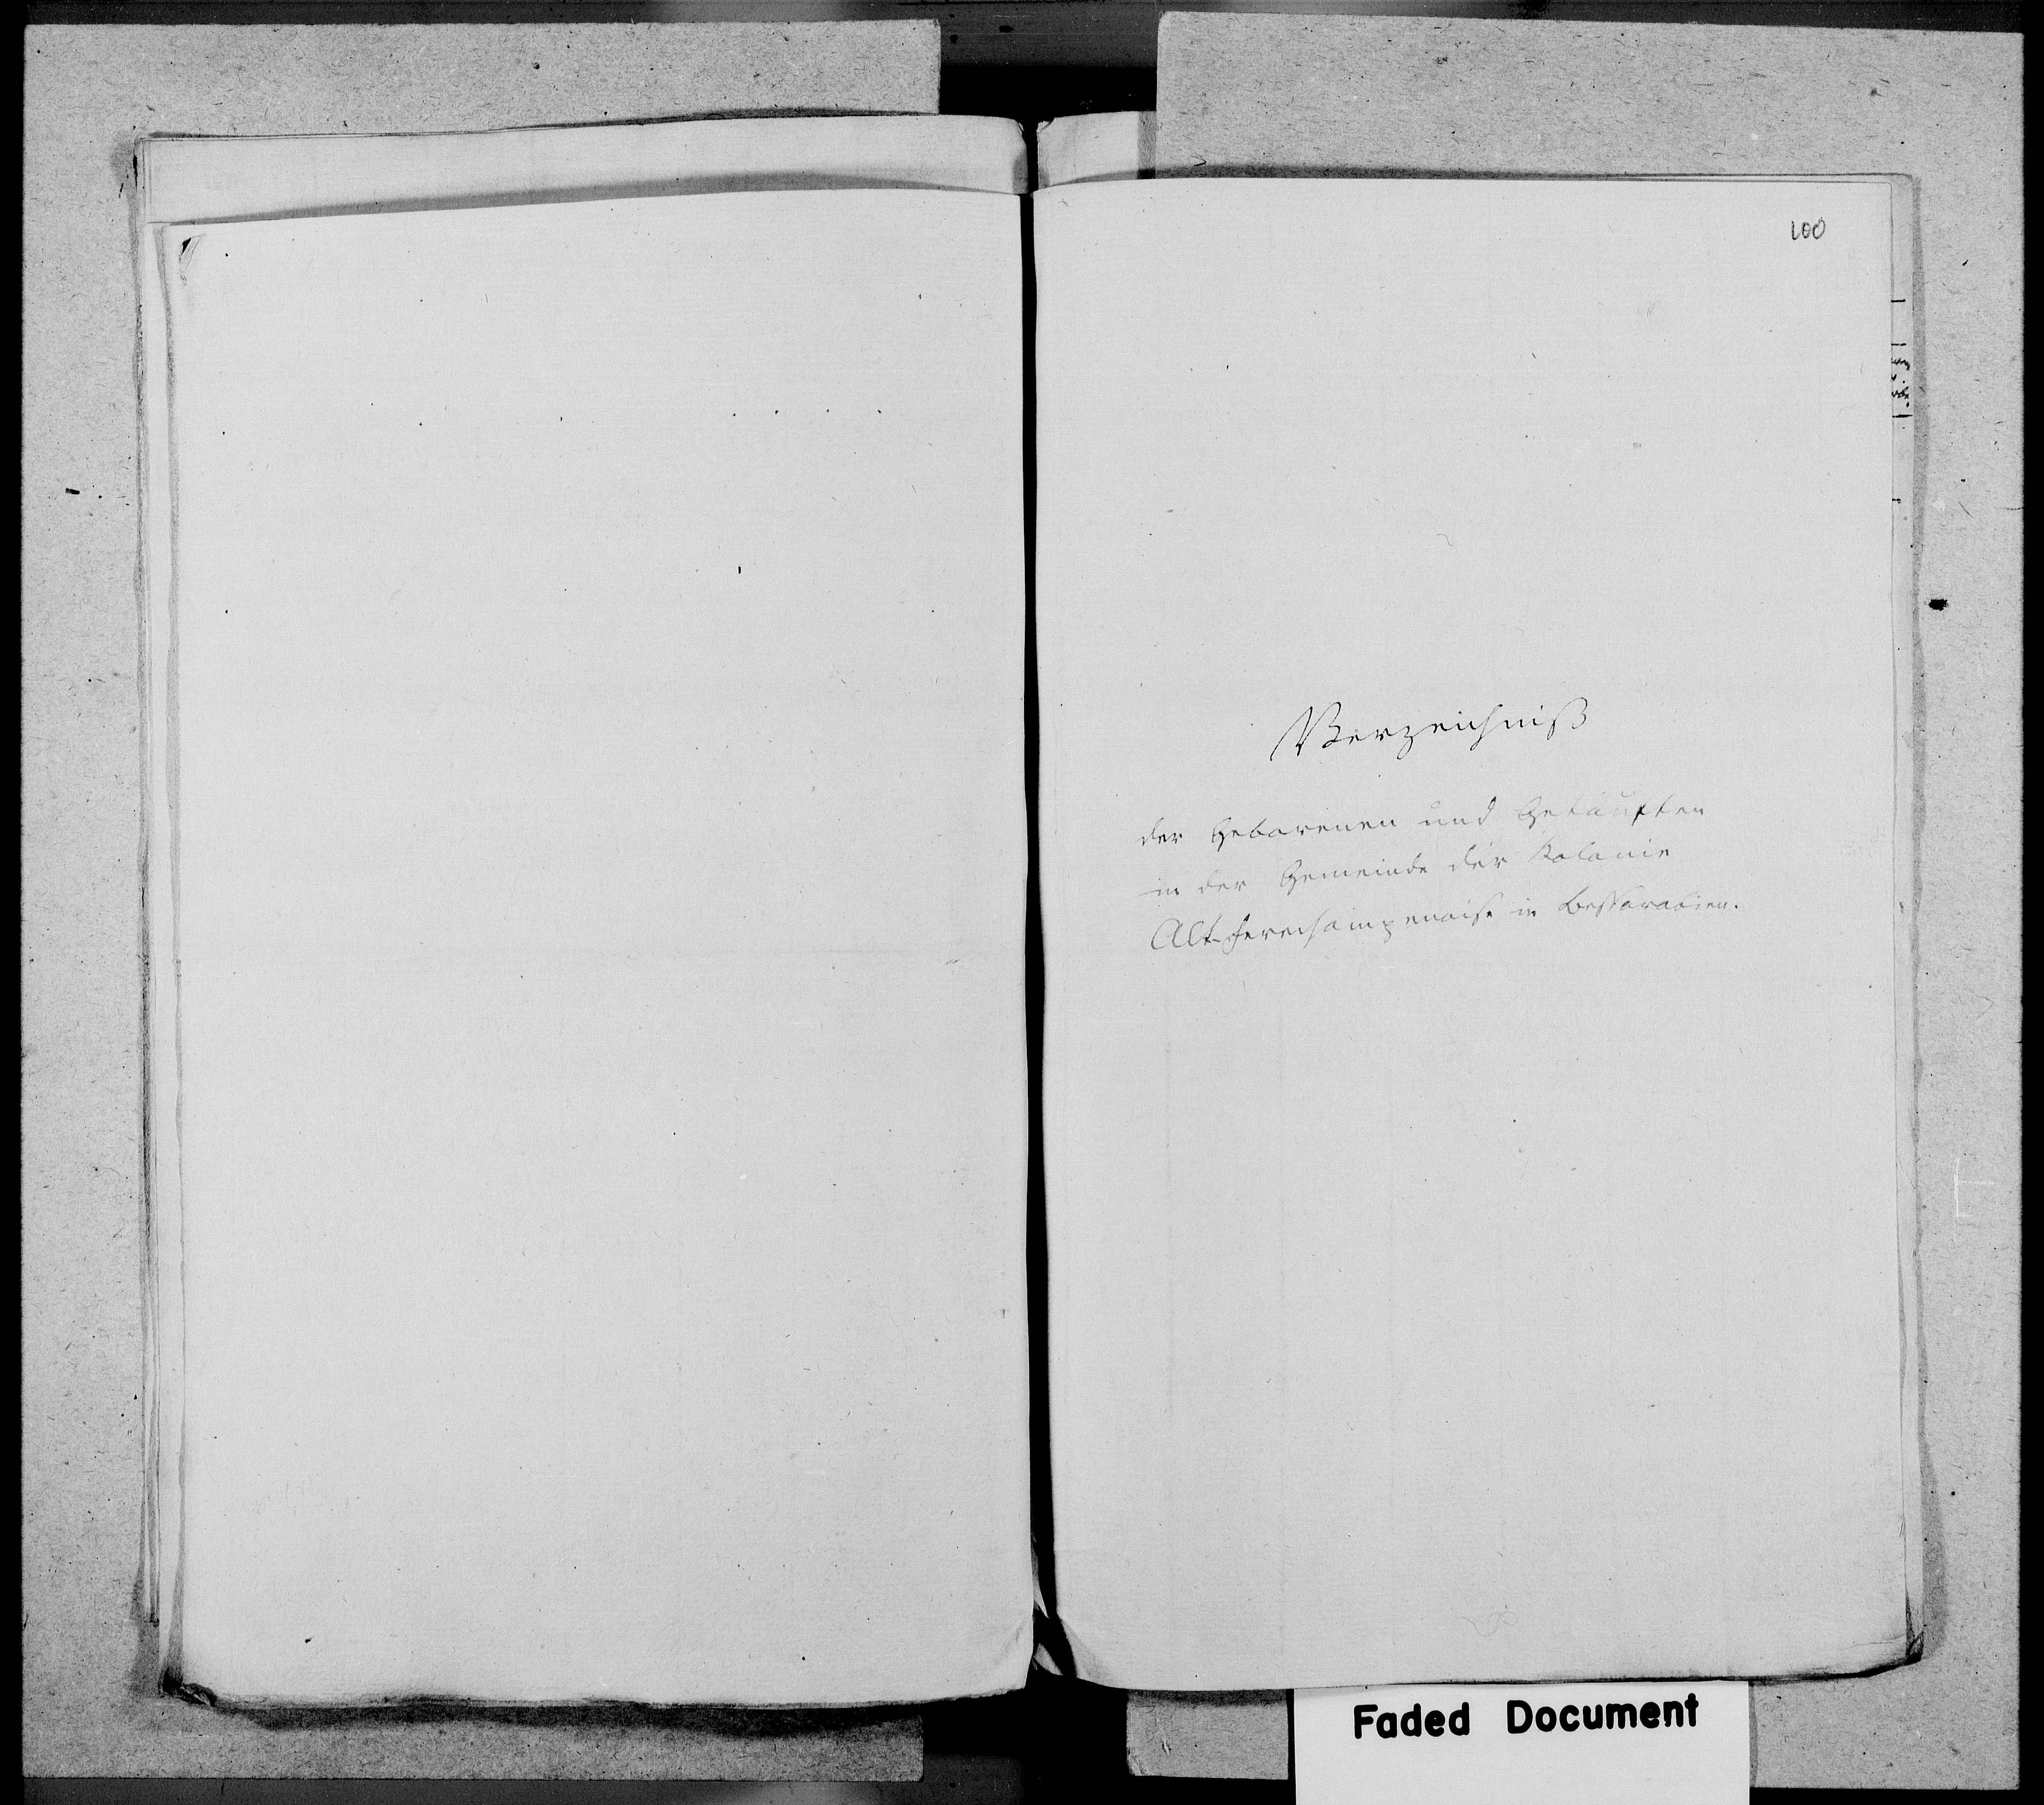 100
Verzeichniß
der Geborenen und Getauften
in der Gemeinde der Kolonie
Alt-Ferechampenoise in Bessarabien.
Faded Document